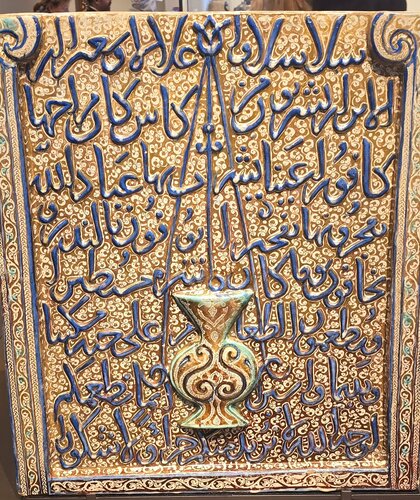 سلاسلا و اغلالا و سعيرا ان
الابرار يشربون من كاس كان مزاجها
كافورا عينا يشرب بها عباد الله
يفجرونها تفجيرا يوفون بالنذر و
يخافون يوما كان شره مستطيرا
و يطعمون الطعام على حبه مسكينا
و يتيما و اسيرا انما نطعمكم
لوجه الله لا نريد منكم جزاء و لا شكورا